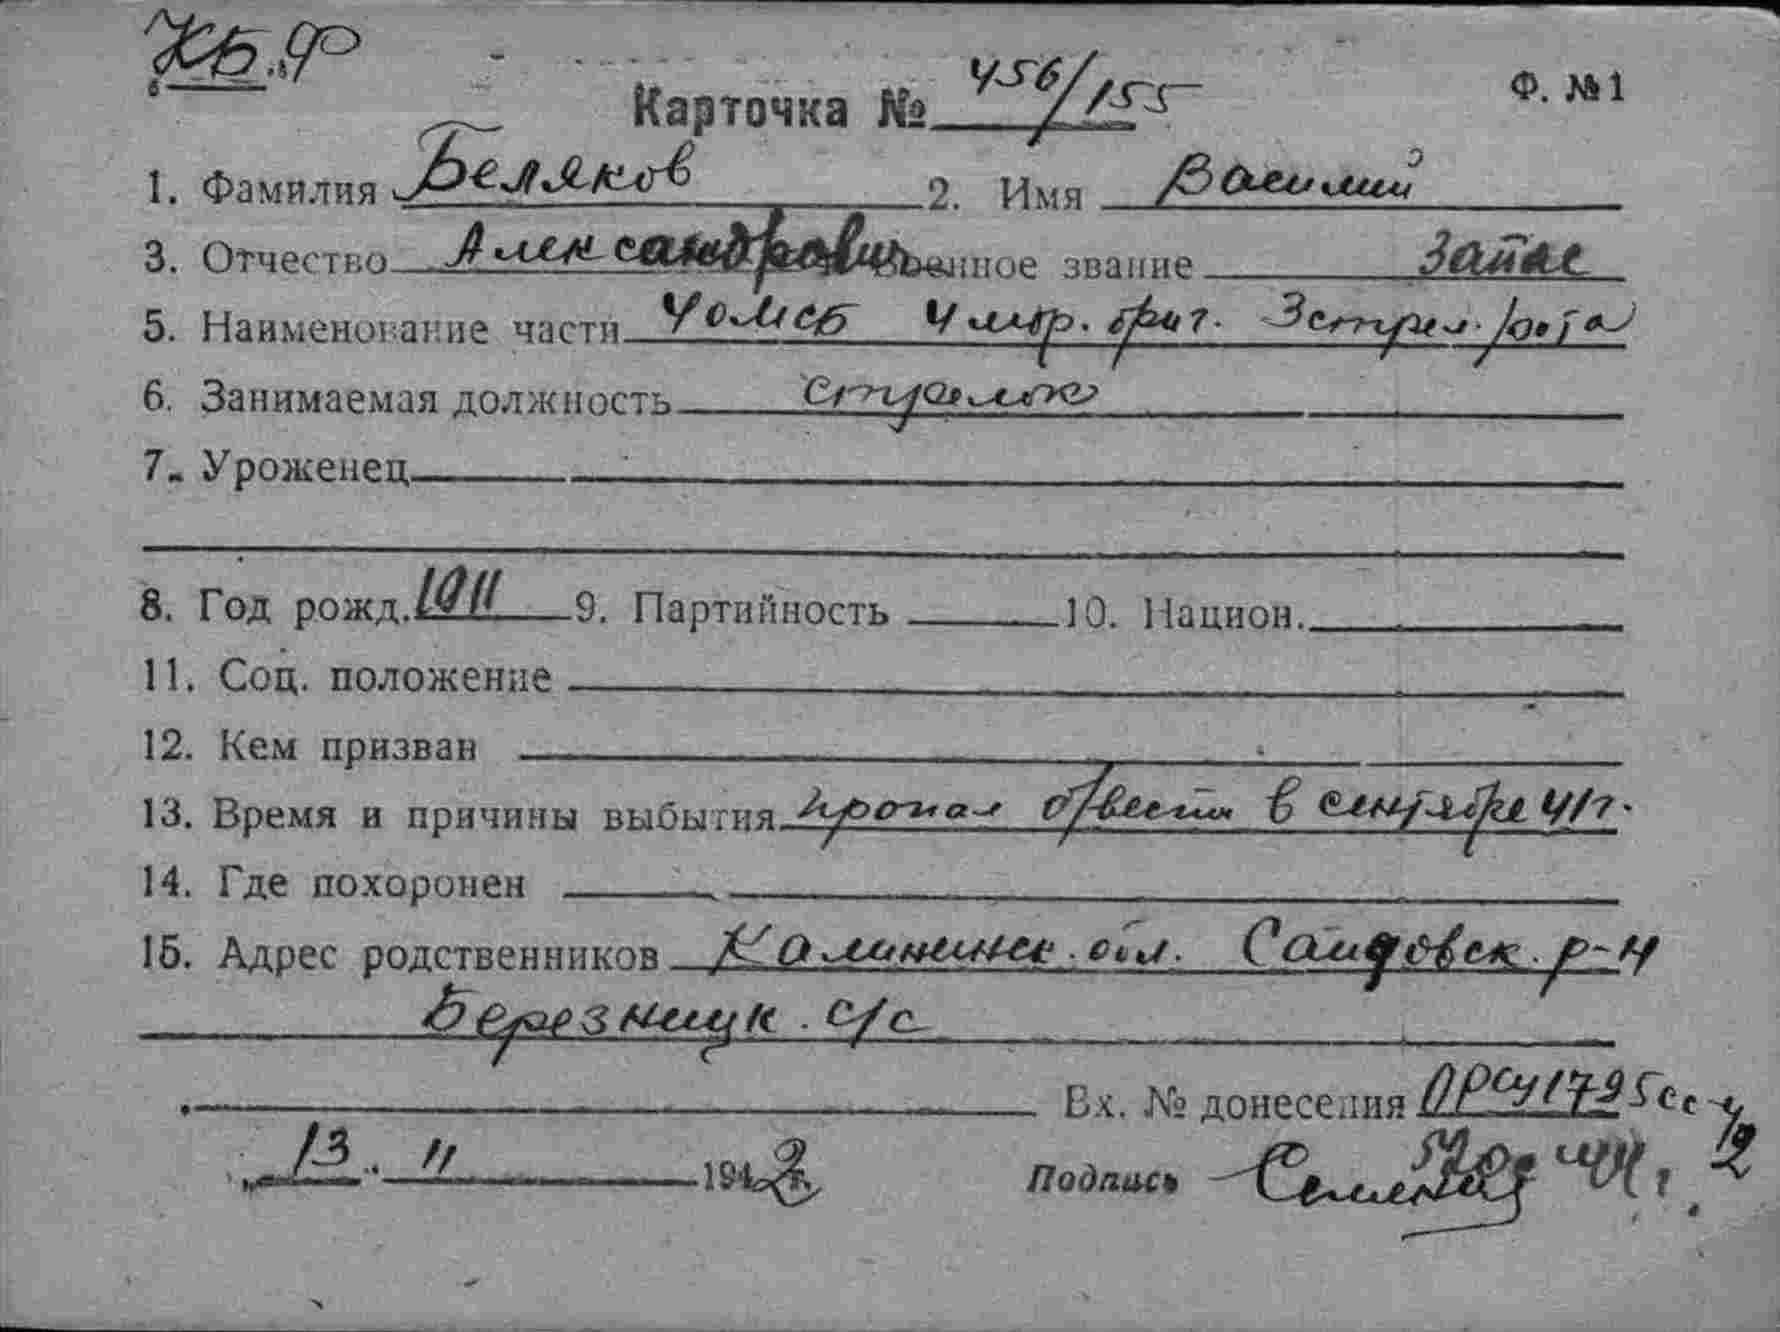 КБ.Ф
Карточка № 456/155 Ф. №1
1. Фамилия Беляков 2. Имя Василий
3. Отчество Александрович военное звание Запас
5. Наименование части 4 омсб 4 мор. бриг. 3 стрел. рота
6. Занимаемая должность стрелок
7. Уроженец
8. Год рожд. 1911 9. Партийность 10. Национ.
11. Соц. положение
12. Кем призван
13. Время и причины выбытия пропал б/вести в сентябре 41 г.
14. Где похоронен
15. Адрес родственников Калининск. обл. Сандовск. р-н
Березницк. с/с
Вх. № донесения ОРСУ 1795сс
13 11 1942 г. Подпись